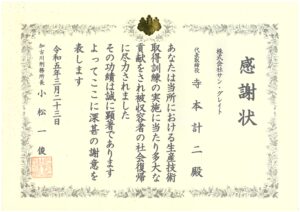 感謝状
株式会社サン・グレイト
代表取締役 寺本計二殿
あなたは当所における生産技術
取得訓練の実施に当たり多大な
貢献をされ被収容者の社会復帰
に尽力されました
その功績は誠に顕著であります
よってここに深甚の謝意を
表します
令和五年三月二十三日
加古川刑務所長 小松一俊